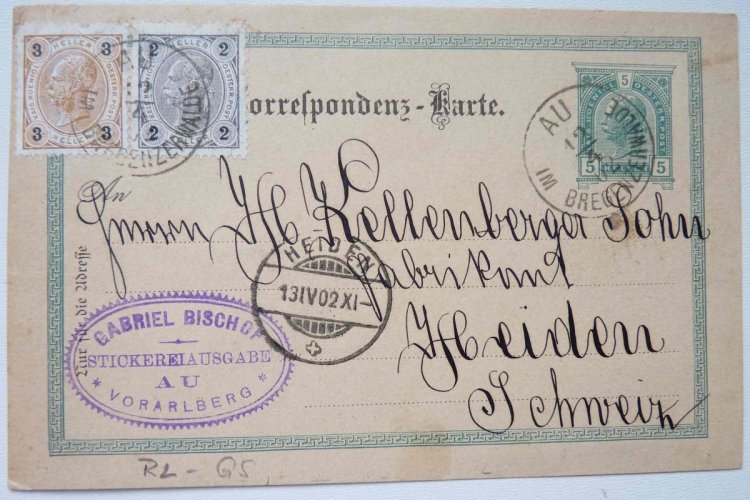 3 HELLER 3
3 3
2 HELLER 2
2 2
Correspondenz-Karte.
5
5 5
AU
12
IM BREGENZERWALDE
An
Herrn H. Kellenberger Sohn
Fabrikant
Heiden
Schweiz
HEIDEN
13 IV 02 XI
Nur für die Adresse
GABRIEL BISCHOF
STICKEREIAUSGABE
AU
* VORARLBERG *
RL - GS